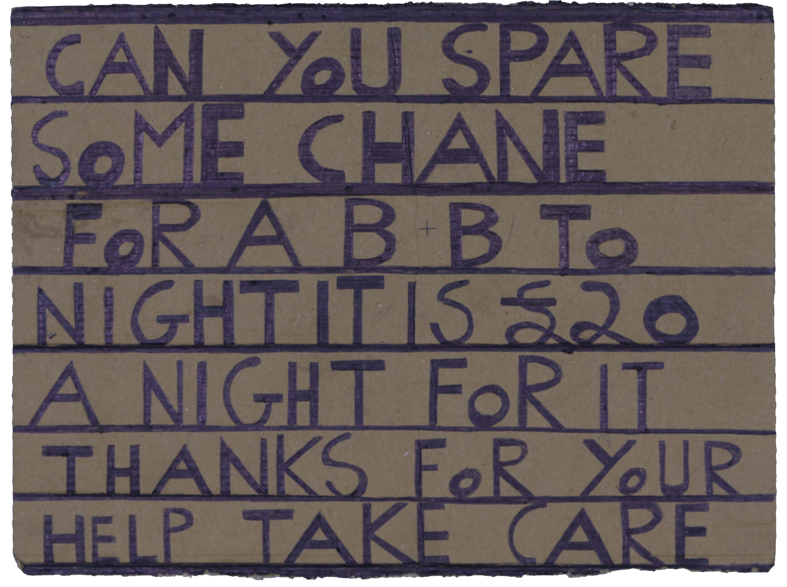 CAN YoU SPARE
SoME CHANE
FoR A B + B To
NIGHT IT IS £20
A NIGHT FoR IT
THANKS FoR YoUR
HELP TAKE CARE